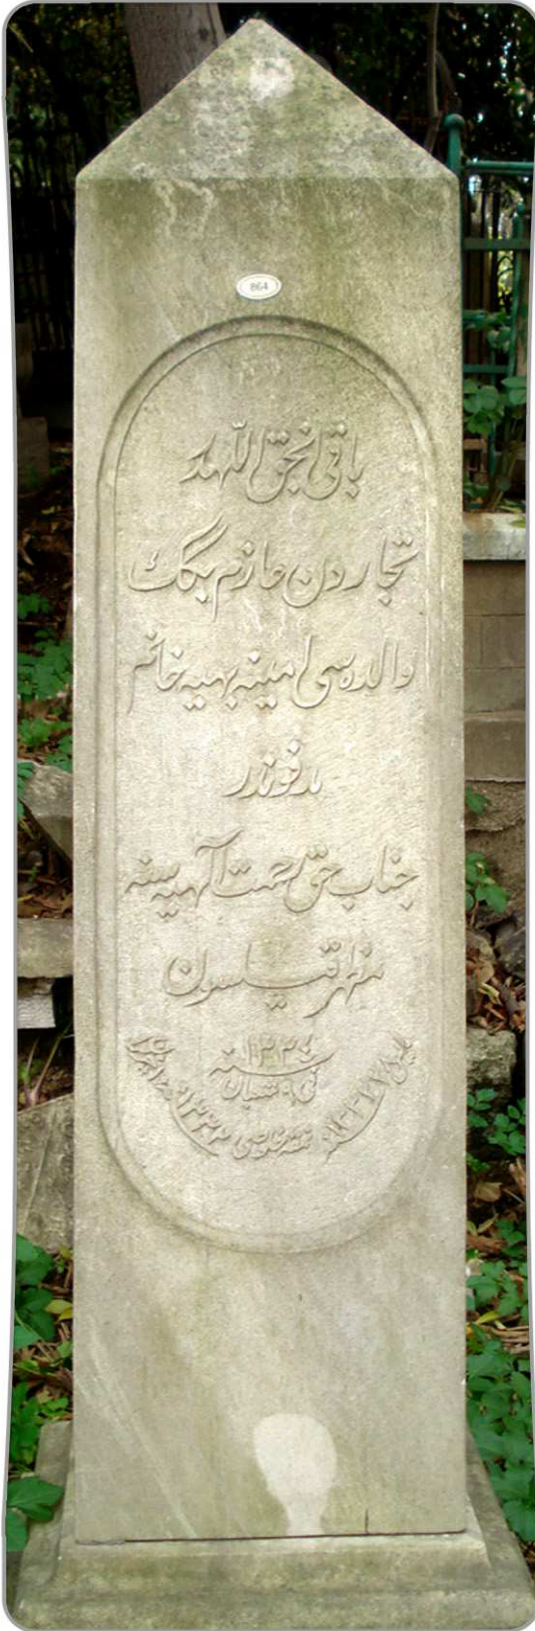 864
باقی انجق اللهدر
تجاردن حازم بكك
والدەسی امینه بهیه خانم
مدفوندر
جناب حق رحمت آلهیه سنه
مظهر قیلسون
١٣٣٤
سنه
فی ٩ شعبان